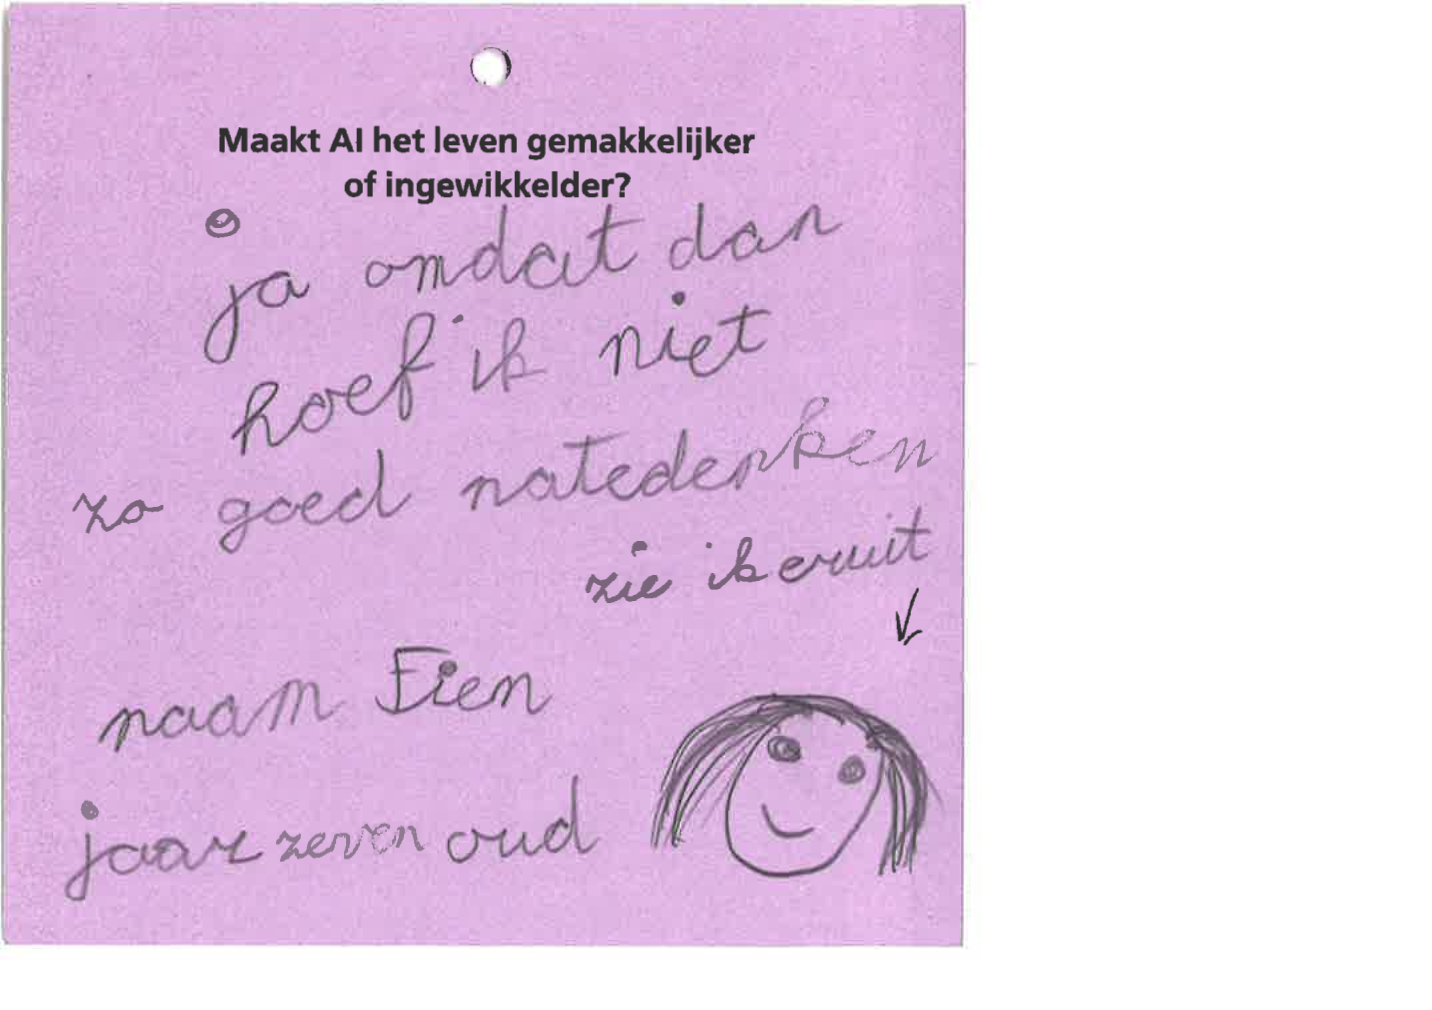 Maakt AI het leven gemakkelijker
of ingewikkelder?
ja omdat dan
hoef ik niet
zo goed natedenken
zie ik eruit
naam Fien
jaar zeven oud